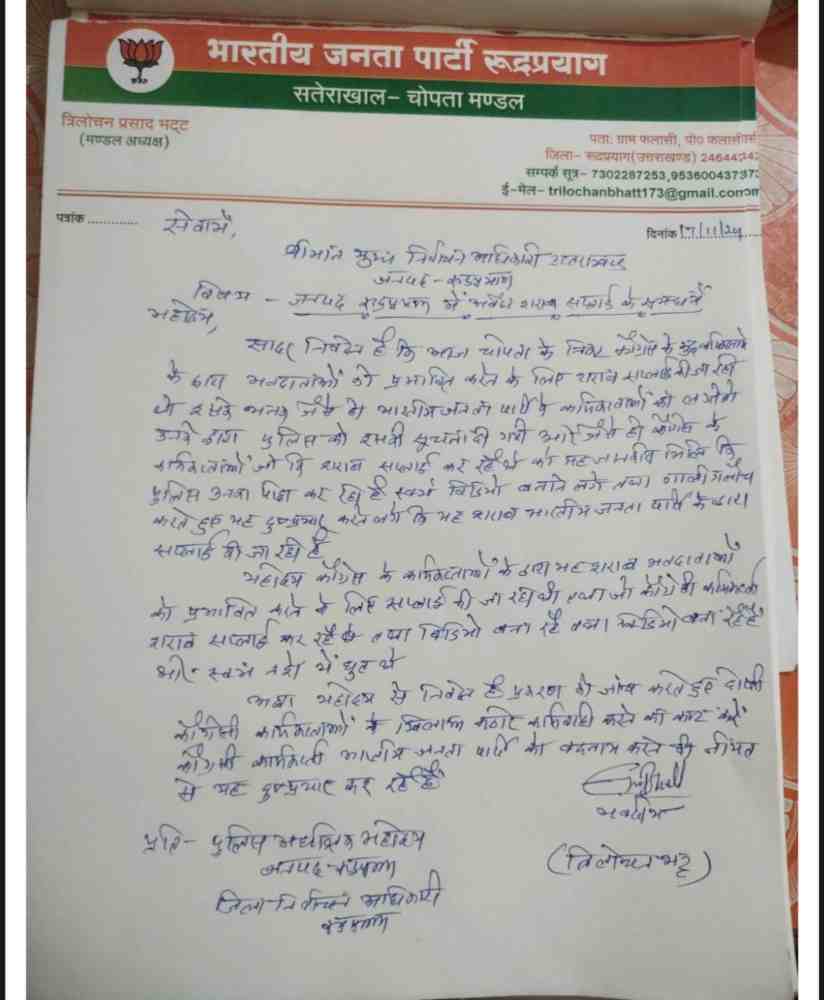 भारतीय जनता पार्टी रूद्रप्रयाग
सतेराखाल- चोपता मण्डल
त्रिलोचन प्रसाद भट्ट
(मण्डल अध्यक्ष)
पता: ग्राम फलासी, पो० फलासी
जिला- रूदप्रयाग(उत्तराखण्ड)
सम्पर्क सूत्र- 7302287253,9536004373
ई-मेल- trilochanbhatt173@gmail.com
पत्रांक ............
दिनांक
सेवामें,
श्रीमान मुख्य निर्वाचन अधिकारी उत्तराखण्ड
जनपद - रूद्रप्रयाग
विषय - जनपद रूद्रप्रयाग में अवैध शराब सप्लाई के सम्बन्ध में
महोदय,
सादर निवेदन है कि आज चोपता के निकट काँग्रेस के कुछ कार्यकर्ताओं
के द्वारा मतदाताओं को प्रभावित करने के लिए शराब सप्लाई की जा रही
थी इसकी भनक जैसे ही भारतीय जनता पार्टी के कार्यकर्ताओं को लगी तो
उनके द्वारा पुलिस को इसकी सूचना दी गयी और जैसे ही काँग्रेस के
कार्यकर्ताओं जो कि शराब सप्लाई कर रहे थे को यह कि
पुलिस उनका पीछा कर रही है स्वयं विडियो बनाने लगे तथा गाली गलौच
करते हुए यह दुष्प्रचार करने लगे कि यह शराब भारतीय जनता पार्टी के द्वारा
सप्लाई की जा रही है
महोदय काँग्रेस के कार्यकर्ताओं के द्वारा यह शराब मतदाताओं
को प्रभावित करने के लिए सप्लाई की जा रही थी तथा जो काँग्रेसी कार्यकर्ता
शराब सप्लाई कर रहे थे तथा विडियो बना रहे तथा विडियो बना रहे हैं
स्वयं नशे में धुत थे
अतः महोदय से निवेदन है प्रकरण की जांच करते हुए दोषी
काँग्रेसी कार्यकर्ताओं के खिलाफ कठोर कार्यवाही करने की कष्ट करें
काँग्रेसी कार्यकर्ता भारतीय जनता पार्टी को बदनाम करने की नीयत
से यह दुष्प्रचार कर रहे हैं
भवदीय
(त्रिलोचन भट्ट)
प्रति- पुलिस अधीक्षक महोदय
जनपद रूद्रप्रयाग
जिला निर्वाचन अधिकारी
रूद्रप्रयाग